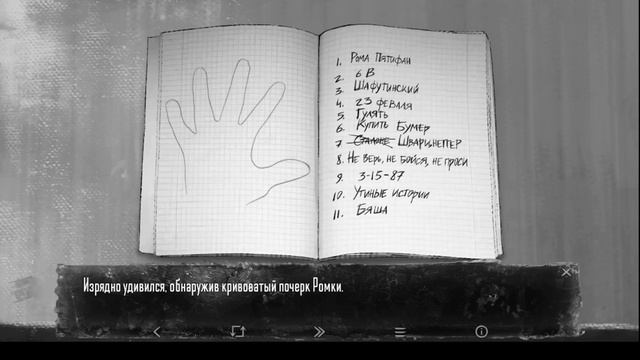 1. Рома Пятифан
2. 6 В
3. Шафутинский
4. 23 феваля
5. Гулять
6. Купить Бумер
7 Сталоне Шварцнеггер
8. Не верь, не бойся, не проси
9. 3-15-87
10. Утиные истории
11. Бяша
Изрядно удивился, обнаружив кривоватый почерк Ромки.